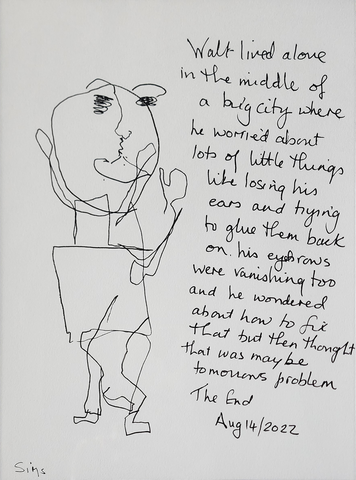 Walt lived alone
in the middle of
a big city where
he worried about
lots of little things
like losing his
ears and trying
to glue them back
on. his eyebrows
were vanishing too
and he wondered
about how to fix
that but then thought
that was maybe
tomorrows problem
The End
Aug 14/2022
Sims